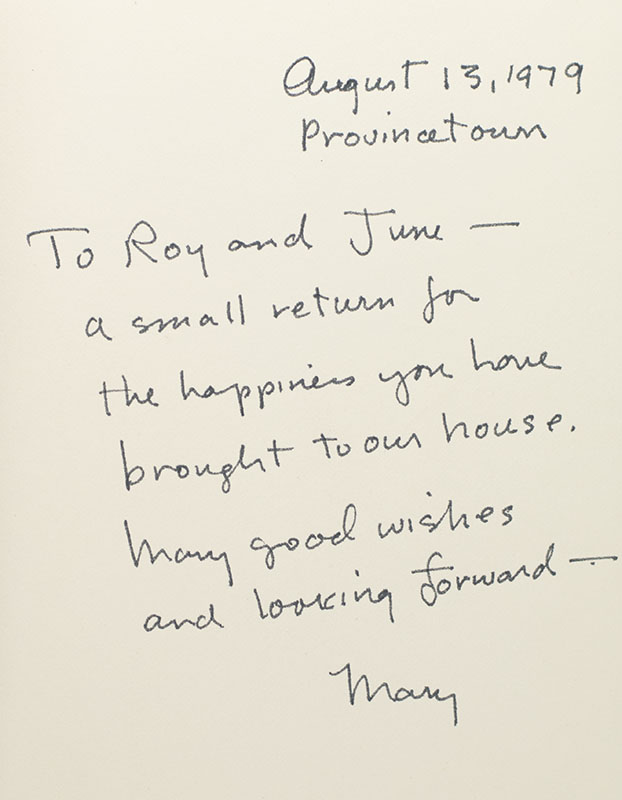 August 13, 1979
Provincetown
To Roy and June —
a small return for
the happiness you have
brought to our house.
Many good wishes
and looking forward —
Mary